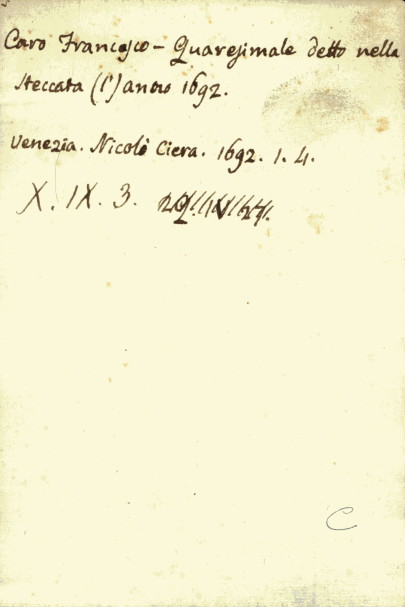 Caro Francesco - Quaresimale detto nella
steccata (l') anno 1692.
Venezia. Nicolò Ciera. 1692. 1. 4.
X. IX. 3.
C